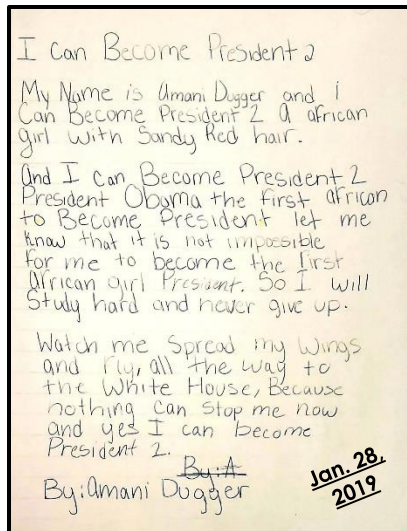 I Can Become President 2
My Name is Amani Dugger and i
Can Become President 2 a african
girl with Sandy Red hair.
And I Can Become President 2
President Obama the first african
to Become President let me
Know that it is not impossible
for me to become the first
African girl President. So I will
Study hard and never give up.
Watch me Spread my Wings
and Fly, all the way to
the White House, Because
nothing can stop me now
and yes I can become
President 2.
By: A
By: Amani Dugger
Jan. 28,
2019